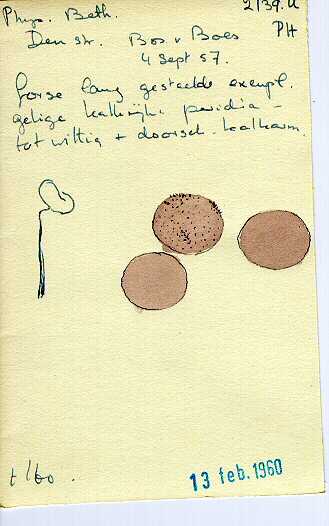 Phys. Beth. 2139.U
Den str. Bos v Boes PH
4 Sept 57.
forse lang gesteelde exempl.
gelige kalkrijke peridia -
tot wittig + doorsch. kalkarm.
t/60.
13 feb. 1960